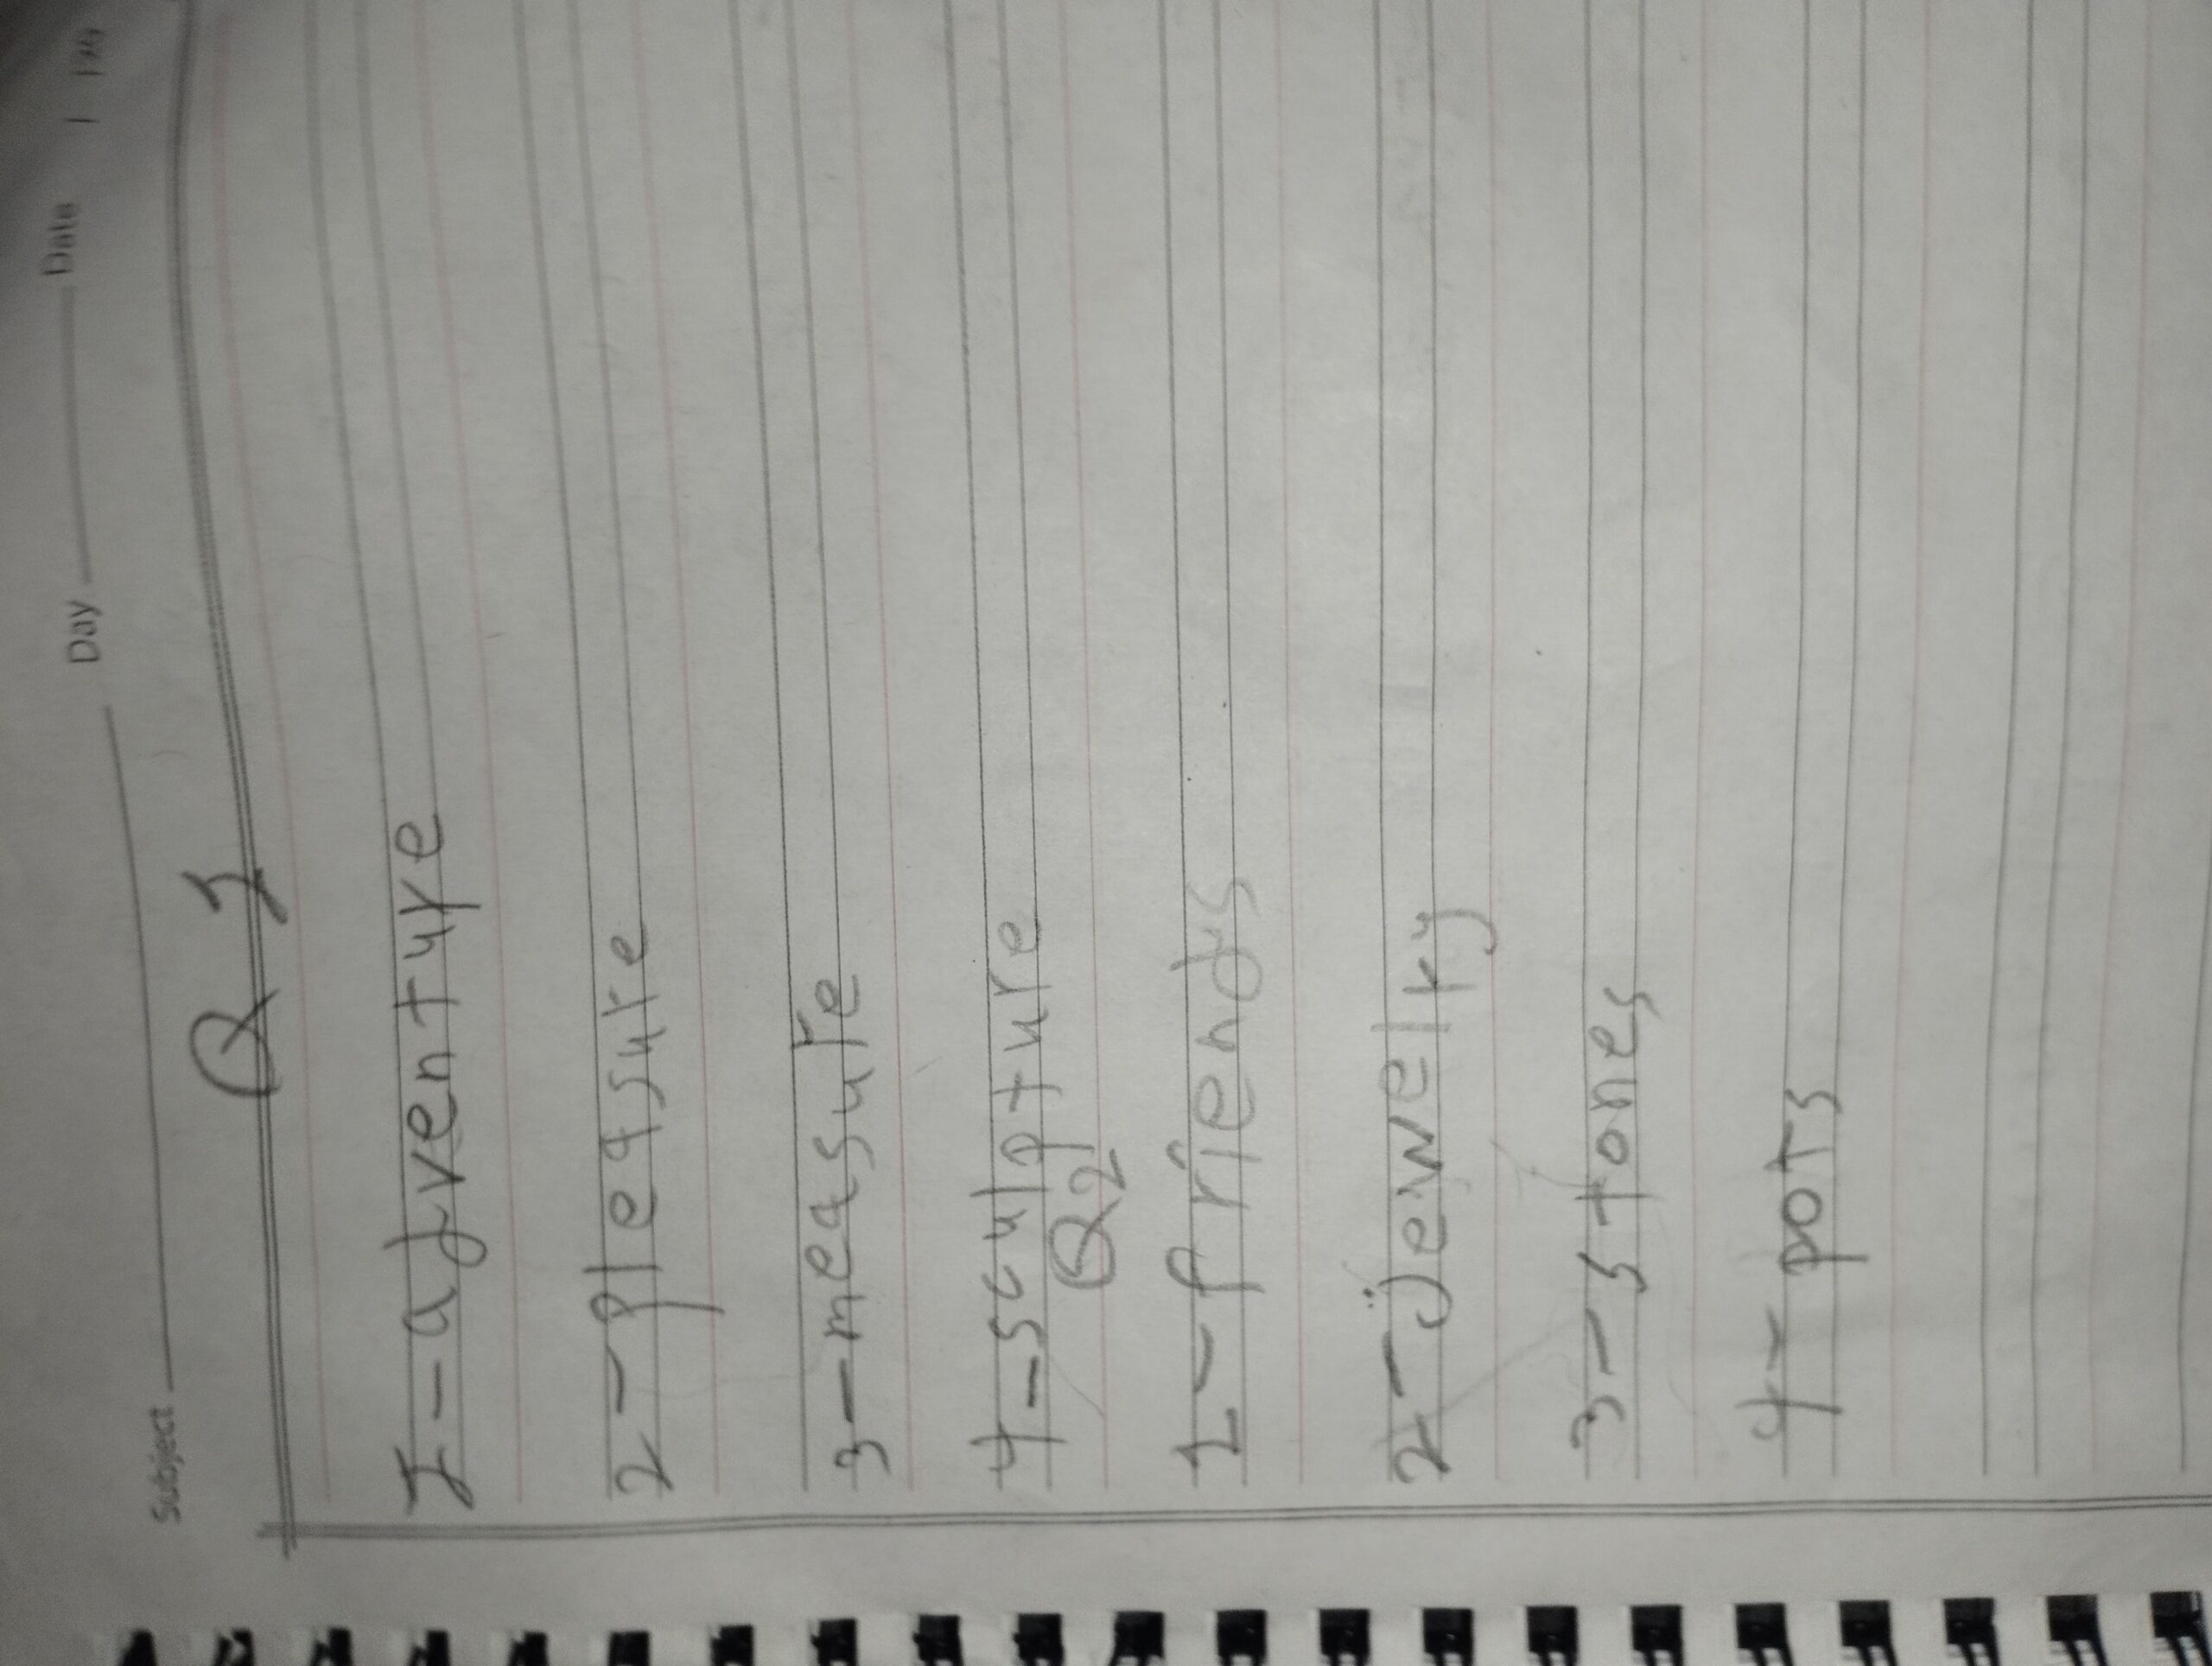 Subject Day Date / / 20
Q 1
1-adventure
2-pleasure
3-measure
4-sculpture
Q2
1-friends
2-Jewelry
3-stones
4-pots